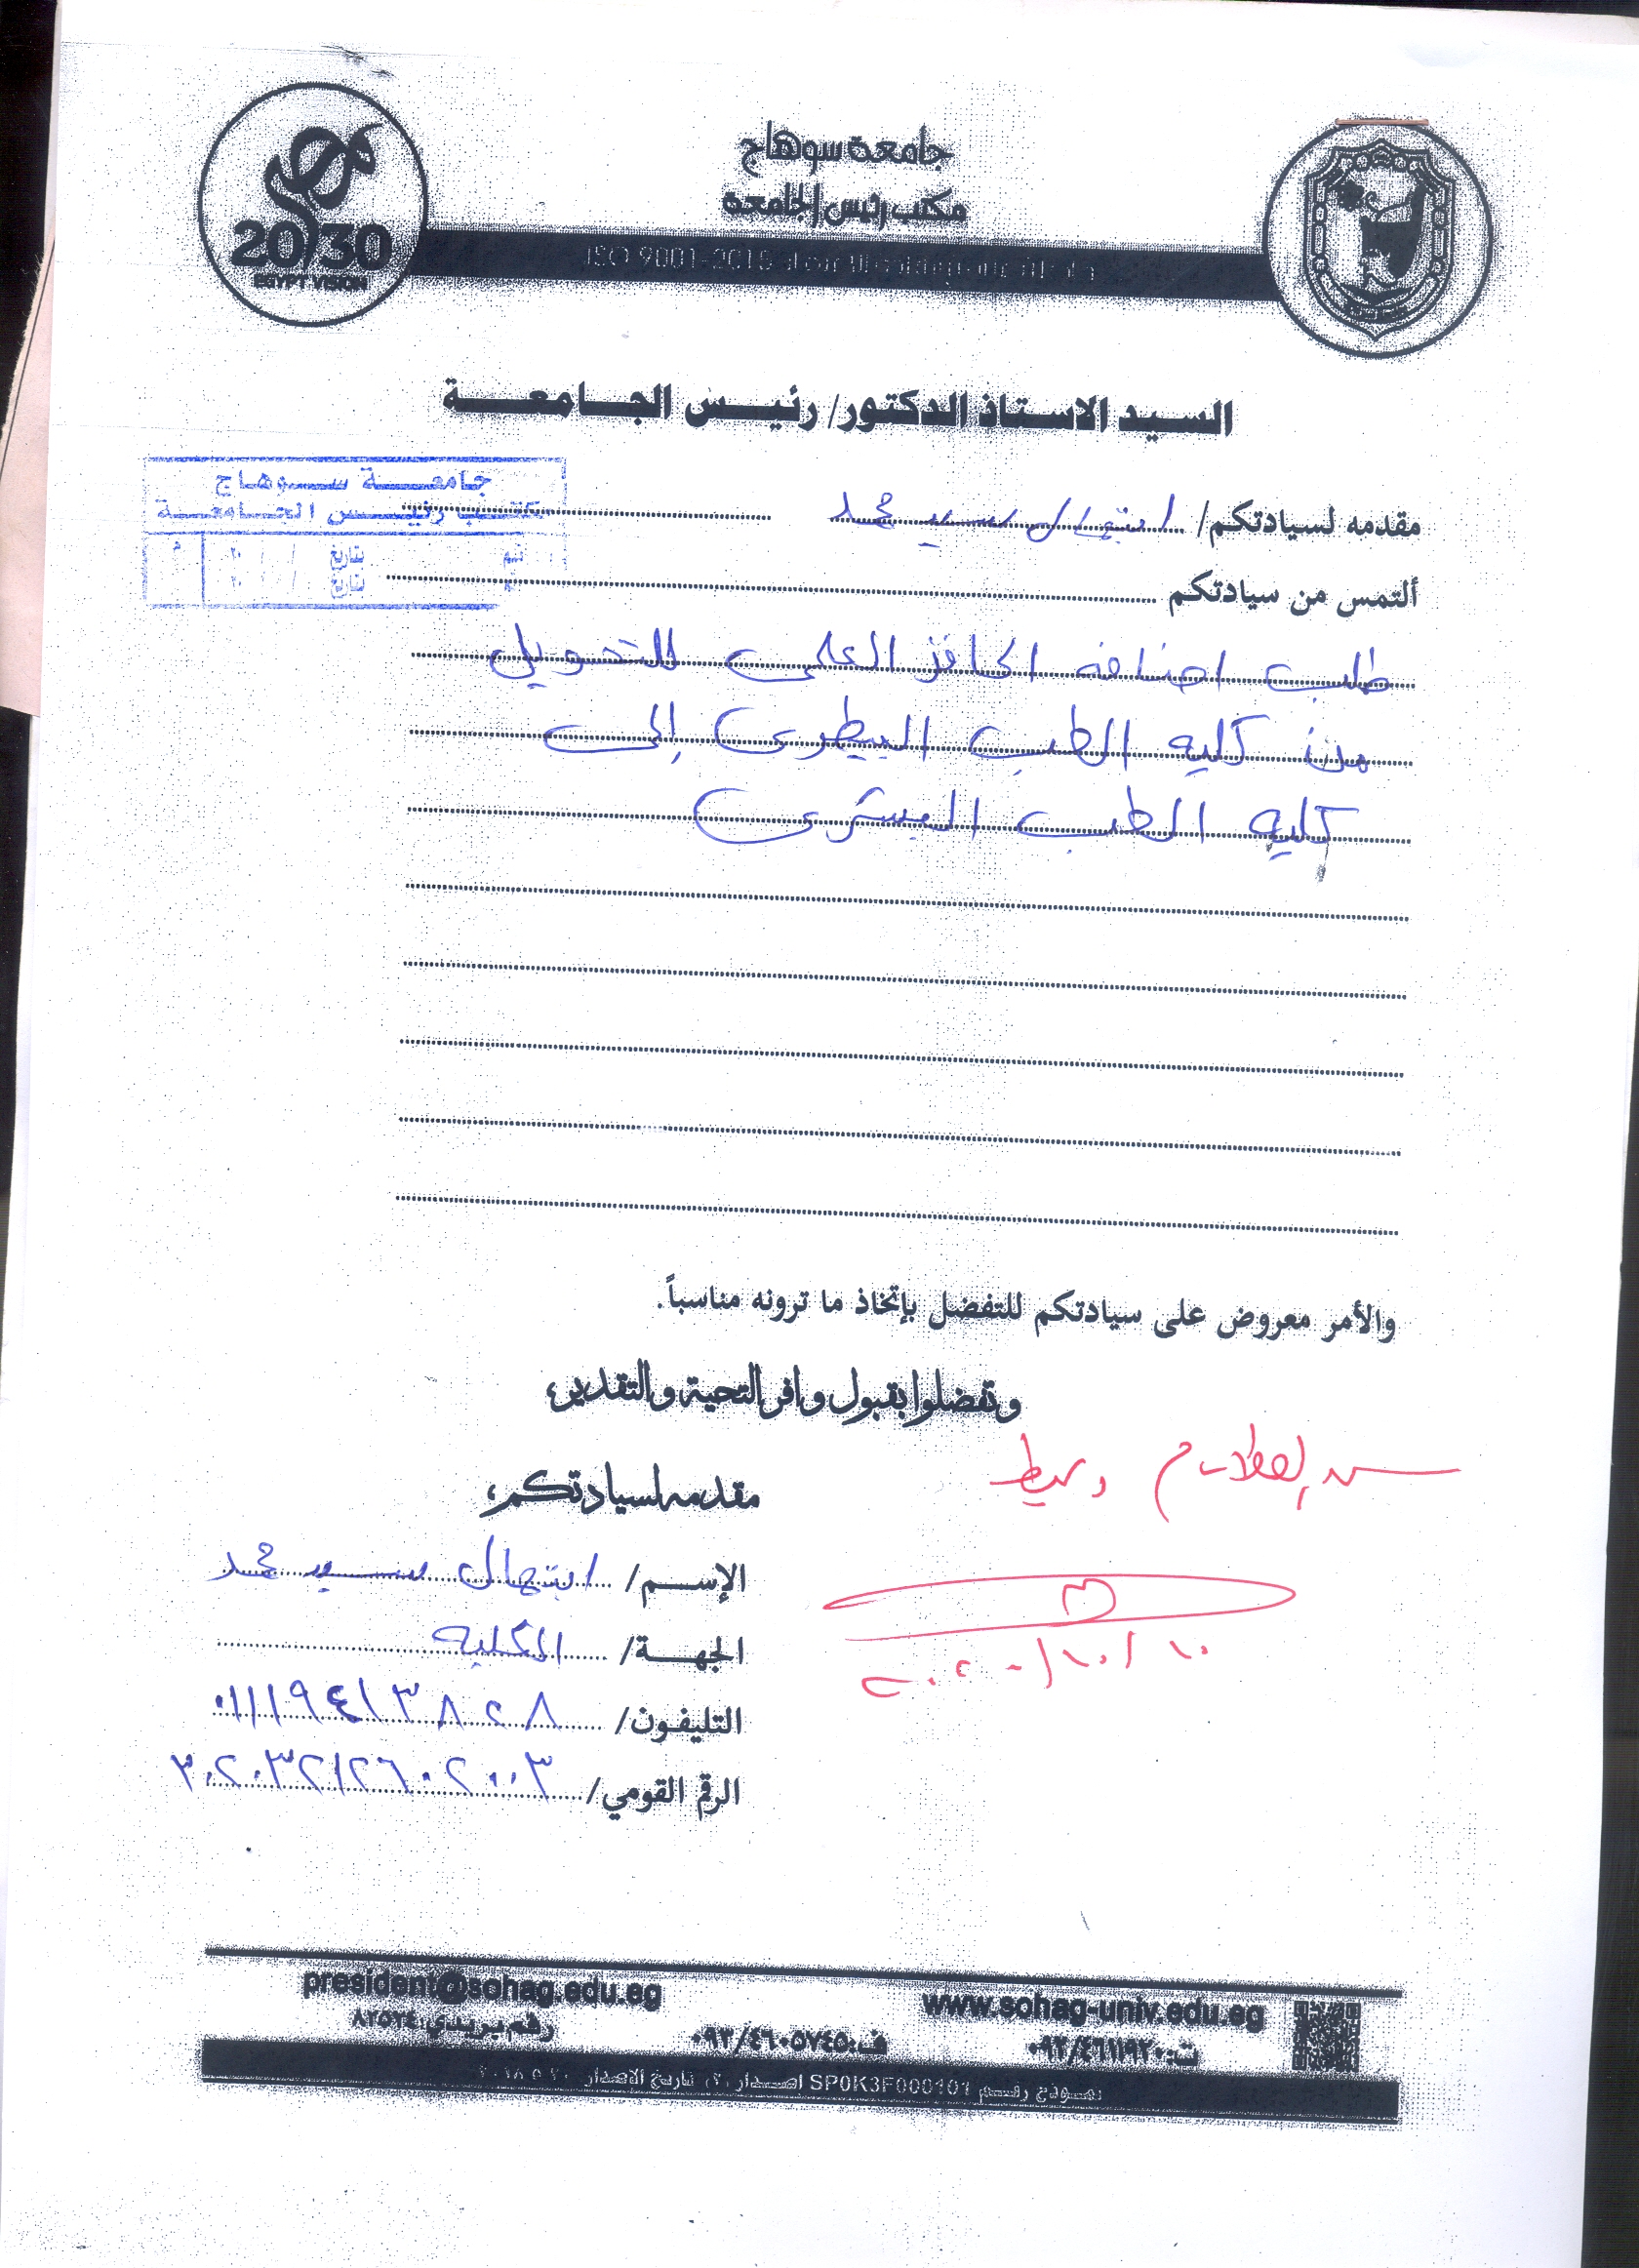 جامعة سوهاج
مكتب رئيس الجامعة
ISO 9001-2015
مصر
20/30
EGYPT VISION
السيد الاستاذ الدكتور/ رئيس الجامعة
جامعة سوهاج
مكتب رئيس الجامعة
بتاريخ / / ٢٠ م
بتاريخ / / ٢٠
مقدمه لسيادتكم/ ابتهال سيد محمد
ألتمس من سيادتكم
طلب اضافه الحافز العلمى للتحويل
من كليه الطب البيطرى إلى
كليه الطب البشرى
والأمر معروض على سيادتكم للتفضل بإتخاذ ما ترونه مناسباً.
وتفضلوا بقبول وافر التحية والتقدير،
مقدمه لسيادتكم،
الإسم/ ابتهال سيد محمد
الجهة/ الكليه
التليفون/ ٠١١١٩٤١٣٨٢٨
الرقم القومي/ ٣٠٢٠٣٢١٢٦٠٢٠٠٣
٢٠٢٠/١٠/١٠
president@sohag.edu.eg
www.sohag-univ.edu.eg
رقم بريدي: ٨٢٥٢٤
ف: ٠٩٣/٤٦٠٥٧٤٥
ت: ٠٩٣/٤٦١١٩٢٠
نموذج رقم SP0K3F000101 اصدار (٢) تاريخ الاصدار